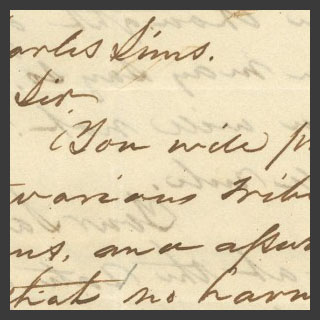 arles Sims.
Sir
You will p
various tribe
ns, and after
that no harm